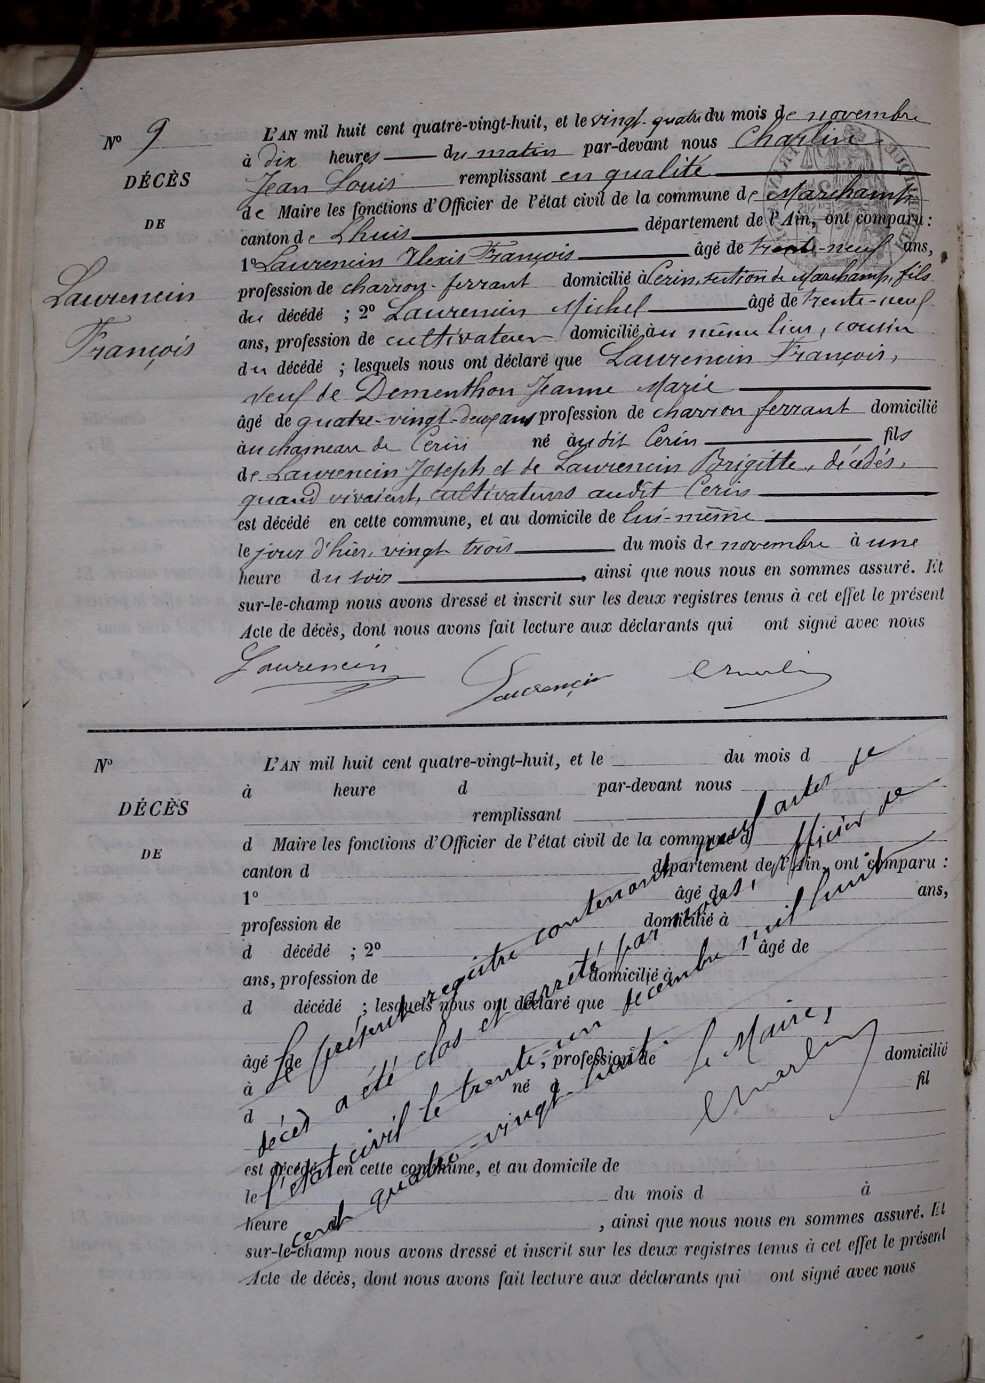 N° 9
DÉCÈS
DE
Laurencin
François
L'AN mil huit cent quatre-vingt-huit, et le vingt-quatre du mois de novembre
à dix heures du matin par-devant nous Charlin
Jean Louis remplissant en qualité
de Maire les fonctions d'Officier de l'état civil de la commune de Marchamp
canton de Lhuis département de l'Ain, ont comparu :
1° Laurencin Alexis François âgé de trente-neuf ans,
profession de charron-ferrant domicilié à Cerin, section de Marchamp, fils
du décédé ; 2° Laurencin Michel âgé de trente-neuf
ans, profession de cultivateur domicilié au même lieu, cousin
du décédé ; lesquels nous ont déclaré que Laurencin François,
veuf de Dementhon Jeanne Marie
âgé de quatre-vingt-deux ans profession de charron ferrant domicilié
au hameau de Cerin né audit Cerin fils
de Laurencin Joseph et de Laurencin Brigitte, décédés,
quand vivaient, cultivateurs audit Cerin
est décédé en cette commune, et au domicile de lui-même
le jour d'hier, vingt trois du mois de novembre à une
heure du soir, ainsi que nous nous en sommes assuré. Et
sur-le-champ nous avons dressé et inscrit sur les deux registres tenus à cet effet le présent
Acte de décès, dont nous avons fait lecture aux déclarants qui ont signé avec nous
Laurencin Laurencin Charlin
N°
DÉCÈS
DE
L'AN mil huit cent quatre-vingt-huit, et le du mois d
à heure d par-devant nous
remplissant
d Maire les fonctions d'Officier de l'état civil de la commune d
canton d département de l'Ain, ont comparu :
1° âgé de ans,
profession de domicilié à
d décédé ; 2° âgé de
ans, profession de domicilié à
d décédé ; lesquels nous ont déclaré que
âgé de profession de domicilié
à né à fil
d
est décédé en cette commune, et au domicile de
le du mois d à
heure d , ainsi que nous nous en sommes assuré. Et
sur-le-champ nous avons dressé et inscrit sur les deux registres tenus à cet effet le présent
Acte de décès, dont nous avons fait lecture aux déclarants qui ont signé avec nous
Le présent registre contenant neuf actes de
décès a été clos et arrêté par nous, officier de
l'état civil le trente-un décembre mil huit
cent quatre-vingt-huit.
Le Maire,
Charlin